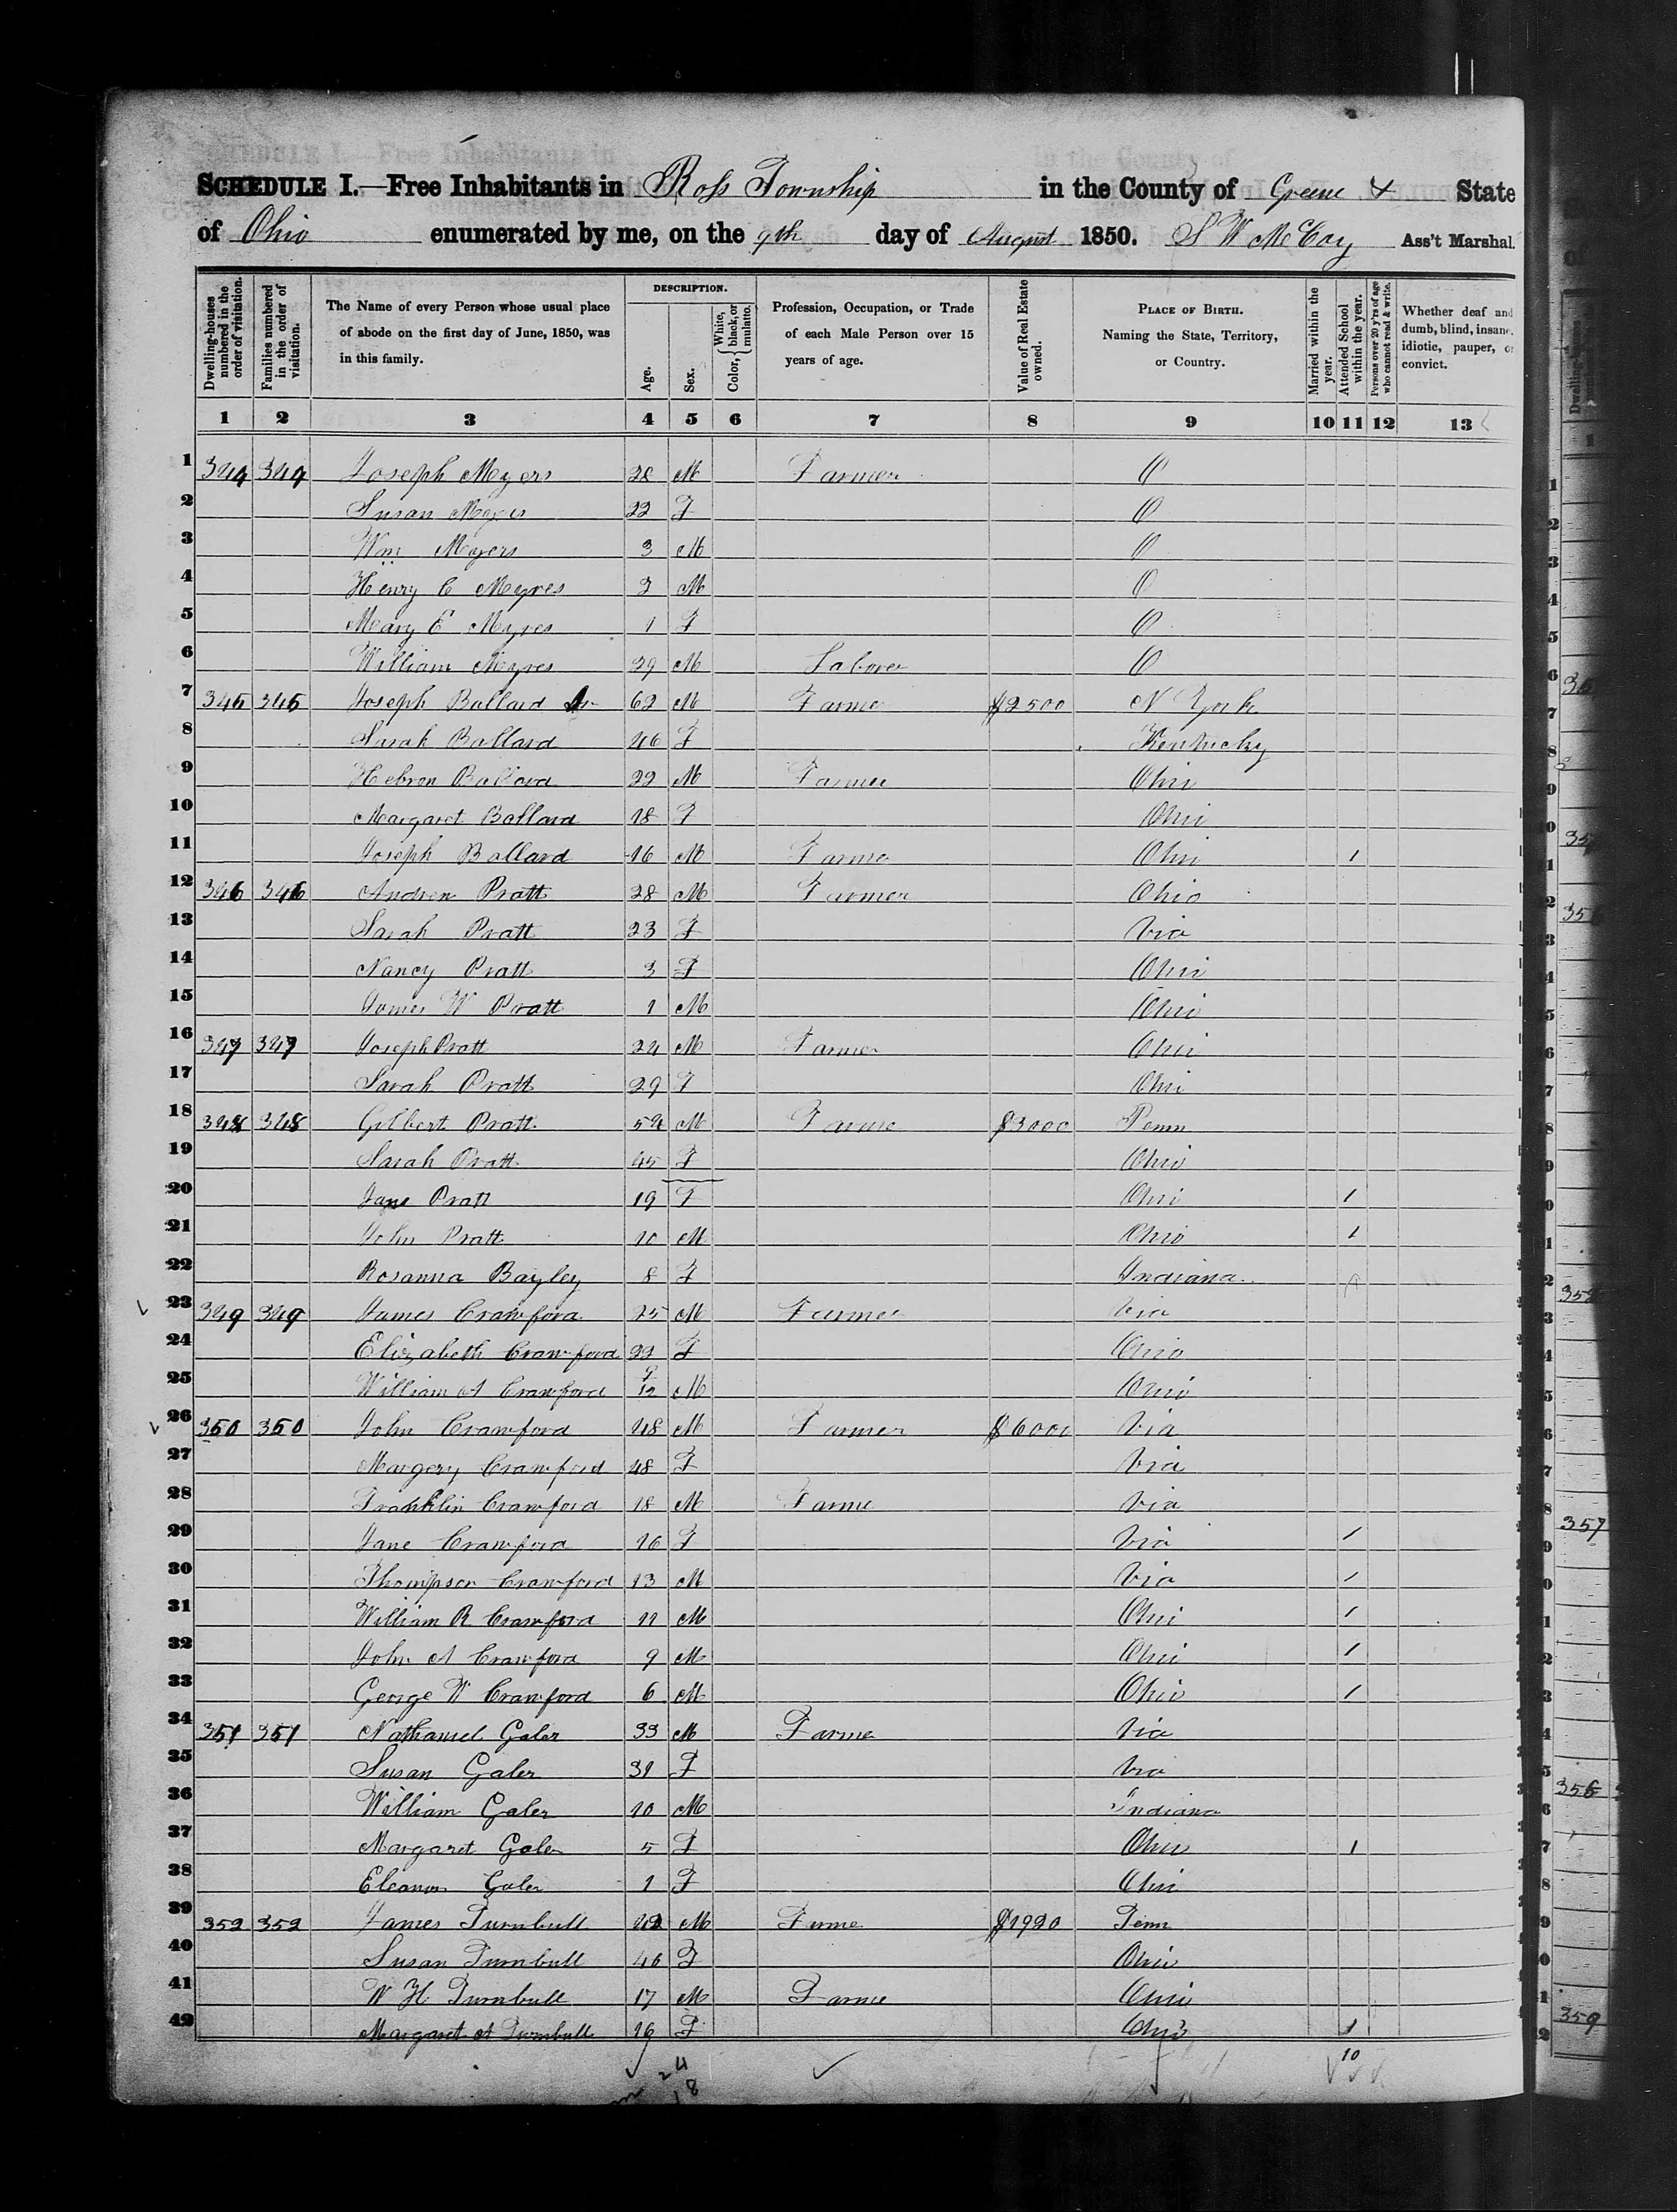 SCHEDULE I.—Free Inhabitants in Ross Township in the County of Greene & State
of Ohio enumerated by me, on the 9th day of August 1850. S W McCoy Ass't Marshal.
Dwelling-houses numbered in the order of visitation.
Families numbered in the order of visitation.
The Name of every Person whose usual place of abode on the first day of June, 1850, was in this family.
DESCRIPTION.
Age.
Sex.
Color, White, black, or mulatto.
Profession, Occupation, or Trade of each Male Person over 15 years of age.
Value of Real Estate owned.
PLACE OF BIRTH. Naming the State, Territory, or Country.
Married within the year.
Attended School within the year.
Persons over 20 y'rs of age who cannot read & write.
Whether deaf and dumb, blind, insane, idiotic, pauper, or convict.
1 2 3 4 5 6 7 8 9 10 11 12 13
1 344 344 Joseph Meyers 28 M Farmer O
2 Susan Meyers 22 F O
3 Wm Meyers 3 M O
4 Henry C Meyres 2 M O
5 Mary E Myres 1 F O
6 William Meyres 29 M Laborer O
7 345 345 Joseph Ballard 62 M Farmer $2500 N York
8 Sarah Ballard 46 F Kentucky
9 Hebron Ballard 22 M Farmer Ohio
10 Margaret Ballard 18 F Ohio
11 Joseph Ballard 16 M Farmer Ohio 1
12 346 346 Andrew Pratt 28 M Farmer Ohio
13 Sarah Pratt 23 F Via
14 Nancy Pratt 3 F Ohio
15 James W Pratt 1 M Ohio
16 347 347 Joseph Pratt 24 M Farmer Ohio
17 Sarah Pratt 29 F Ohio
18 348 348 Gilbert Pratt 54 M Farmer $3000 Penn
19 Sarah Pratt 45 F Ohio
20 Jane Pratt 19 F Ohio 1
21 John Pratt 10 M Ohio 1
22 Rosanna Bayley 8 F Indiana
23 349 349 James Crawford 25 M Farmer Via
24 Elizabeth Crawford 22 F Ohio
25 William A Crawford 9/12 M Ohio
26 350 350 John Crawford 48 M Farmer $6000 Via
27 Margery Crawford 48 F Via
28 Franklin Crawford 18 M Farmer Via
29 Jane Crawford 16 F Via 1
30 Thompson Crawford 13 M Via 1
31 William R Crawford 11 M Ohio 1
32 John A Crawford 9 M Ohio 1
33 George W Crawford 6 M Ohio 1
34 351 351 Nathaniel Galer 33 M Farmer Via
35 Susan Galer 31 F Via
36 William Galer 10 M Indiana
37 Margaret Galer 5 F Ohio 1
38 Eleanor Galer 1 F Ohio
39 352 352 James Turnbull 42 M Farmer $1920 Tenn
40 Susan Turnbull 46 F Ohio
41 W H Turnbull 17 M Farmer Ohio
42 Margaret A Turnbull 16 F Ohio 1
24
18
10